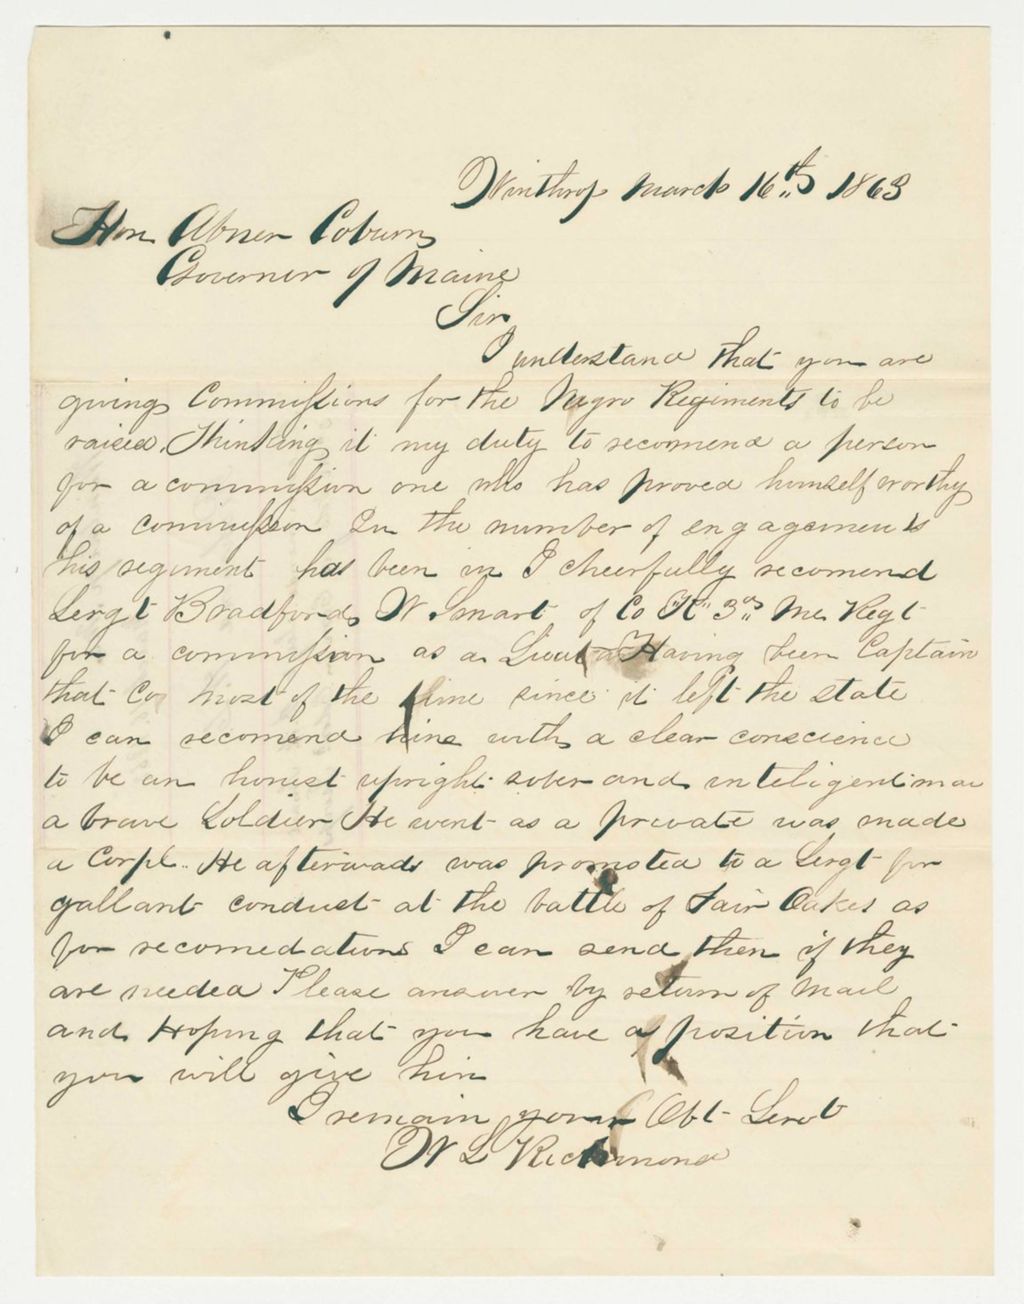 Winthrop March 16th 1863
Hon Abner Coburn
Governor of Maine
Sir
I understand that you are
giving Commissions for the Negro Regiments to be
raised. Thinking it my duty to recomend a person
for a commission one who has proved himself worthy
of a commission In the number of engagements
his regiment has been in I cheerfully recomend
Sergt Bradford W. Smart of Co "K" 3d Me Regt
for a commission as a Lieut Having been Captain
that Co most of the time since it left the state
I can recomend him with a clear conscience
to be an honest upright sober and inteligent man
a brave Soldier He went as a private was made
a Corpl. He afterwads was promoted to a Sergt for
gallant conduct at the battle of Fair Oakes as
for recomedations I can send them if they
are needed Please answer by return of Mail
and Hoping that you have a position that
you will give him
I remain your Obt Servt
W L Richmond